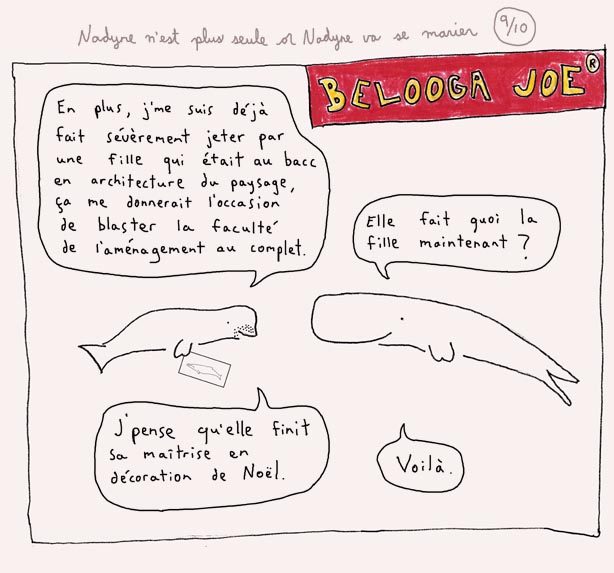 Nadyne n'est plus seule or Nadyne va se marier 9/10
BELOOGA JOE®
En plus, j'me suis déjà
fait sévèrement jeter par
une fille qui était au bacc
en architecture du paysage,
ça me donnerait l'occasion
de blaster la faculté
de l'aménagement au complet.
Elle fait quoi la
fille maintenant ?
J'pense qu'elle finit
sa maîtrise en
décoration de Noël.
Voilà.